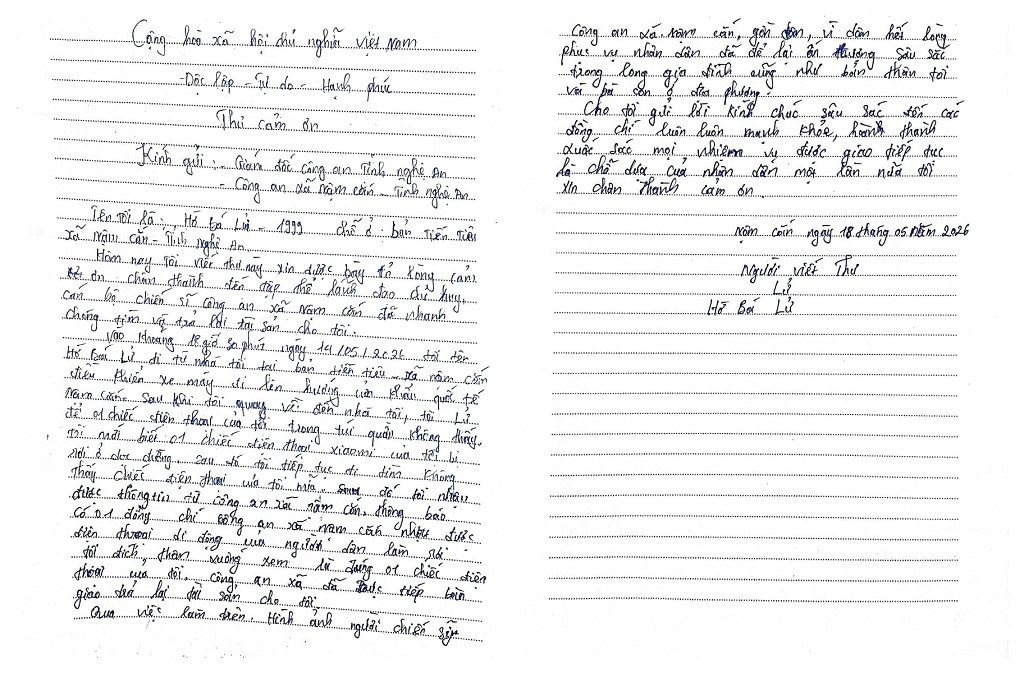 Cộng hoà xã hội chủ nghĩa việt Nam
-Độc lập - Tự do - Hạnh phúc
Thư cảm ơn
Kính gửi: - Giám đốc công an Tỉnh nghệ An
- Công an xã Nậm cắn - Tỉnh nghệ An
Tên tôi là: Hồ Bá Lử - 1999 chỗ ở: bản Tiền Tiêu
xã Nậm cắn - Tỉnh Nghệ An
Hôm nay Tôi viết thư này xin được bày tỏ lòng cảm
ơn chân thành đến tập thể lãnh đạo chỉ huy,
cán bộ chiến sĩ công an xã Nậm cắn đã nhanh
chóng tìm và trả lại tài sản cho tôi.
Vào khoảng giờ 30 phút ngày 14/05/2026 tôi tên
Hồ Bá Lử đi từ nhà tôi tại bản tiền tiêu - xã nậm cắn
điều khiển xe máy đi lên hướng cửa khẩu quốc tế
Nậm cắn. Sau khi tôi quay về đến nhà tôi, tôi Lử
để 01 chiếc điện thoại của tôi trong túi quần không thấy.
Tôi mới biết 01 chiếc điện thoại xiaomi của tôi bị
rơi ở dọc đường. sau đó tôi tiếp tục đi tìm không
thấy chiếc điện thoại của tôi nữa. sau đó tôi nhận
được thông tin từ công an xã nậm cắn. thông báo
có 01 đồng chí công an xã nậm cắn nhặt được
điện thoại di động của người dân làm rơi
tôi đích thân xuống xem là đúng 01 chiếc điện
thoại của tôi. công an xã đã trực tiếp bàn
giao trả lại tài sản cho tôi.
Qua việc làm trên. Hình ảnh người chiến sỹ
Công an xã nậm cắn, gần dân, vì dân hết lòng
phục vụ nhân dân đã để lại ấn tượng sâu sắc
trong long gia đình cũng như bản thân tôi
và bà con ở địa phương.
Cho tôi gửi lời kính chúc sâu sắc đến các
đồng chí luôn luôn mạnh khỏe, hoành thành
xuất sắc mọi nhiệm vụ được giao tiếp tục
là chỗ dựa của nhân dân một lần nữa tôi
xin chân thành cảm ơn.
Nậm cắn ngày 18 tháng 05 năm 2026
Người viết Thư
Lử
Hồ Bá Lử